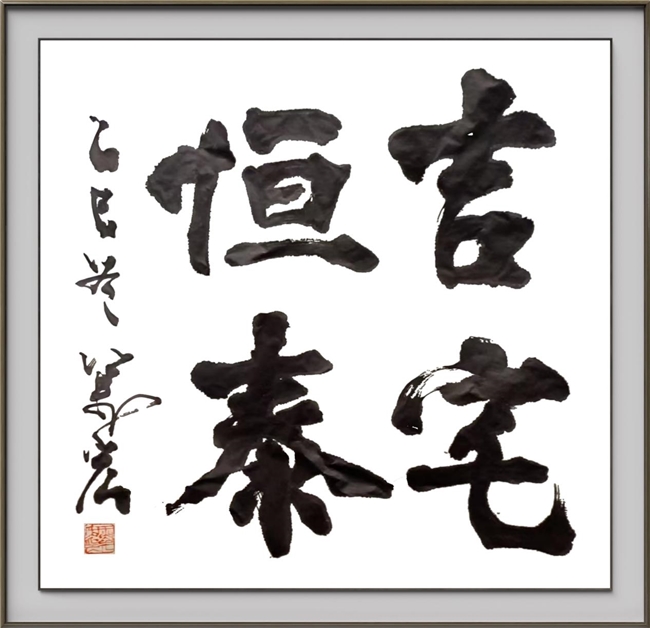 吉宅
恒泰
乙巳冬